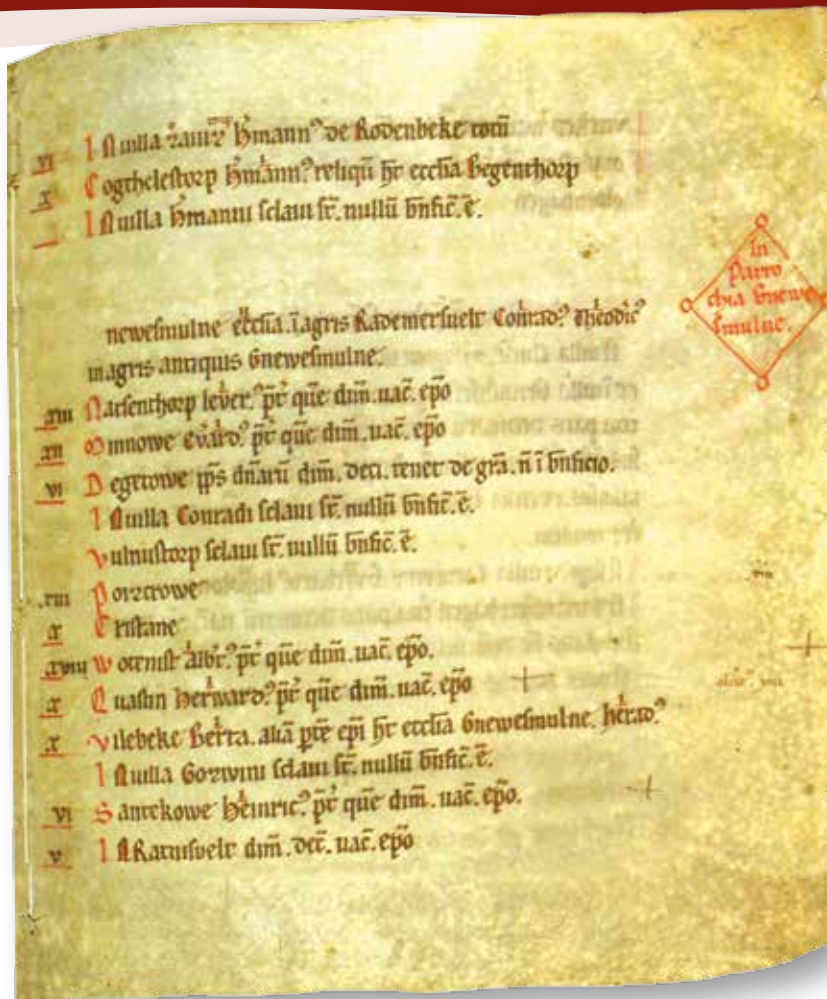 vi In uilla Hͥmannꝰ de Rodenbeke totū
x Cogthelestorp Hͥmannꝰ reliqū hꝫ eccl̄ia Begenthorp
In uilla Hͥmanni sclaui st̄. nullū bn̄fic̄. ē.
In
Parro
chia Gnewe
smulne.
newesmulne eccl̄ia. ī agris Rademersuelt Conradꝰ Theodicꝰ
in agris antiquis Gnewesmulne.
xiii Narsenthorp pt̄ qn̄e dim̄. uac̄. ep̄o
xii Ominowe pt̄ qn̄e dim̄. uac̄. ep̄o
vi Degetowe ip̄s dn̄arū dim̄. deci. tenet de grā. n̄ ī bn̄ficio.
In uilla Conradi sclaui st̄. nullū bn̄fic̄. ē.
vulnustorp sclaui st̄. nullū bn̄fic̄. ē.
.xiii Porztowe
x Tristane
xviii Wotenist Albͥtꝰ pt̄ qn̄e dim̄. uac̄. ep̄o.
x Quassin Herwardꝰ pt̄ qn̄e dim̄. uac̄. ep̄o
x vilebeke Berta. aliā ptē ep̄i hꝫ eccl̄ia Gnewesmulne.
In uilla Gozwini sclaui st̄. nullū bn̄fic̄. ē.
vi Santekowe Heinricꝰ pt̄ qn̄e dim̄. uac̄. ep̄o.
v In Ratnisuelt dim̄. dec̄. uac̄. ep̄o